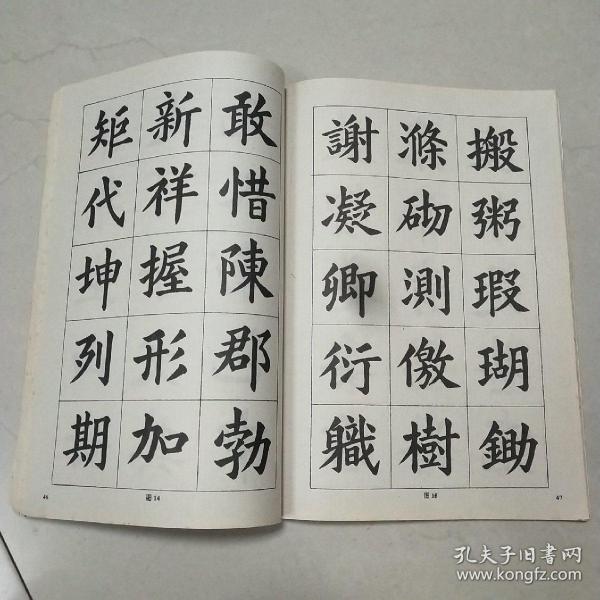 矩新敢
代祥惜
坤握陳
列形郡
期加勃
46
图 14
謝滌搬
凝砌粥
卿測瑕
衍儌瑚
職樹鋤
47
孔夫子旧书网
www.kongfz.com